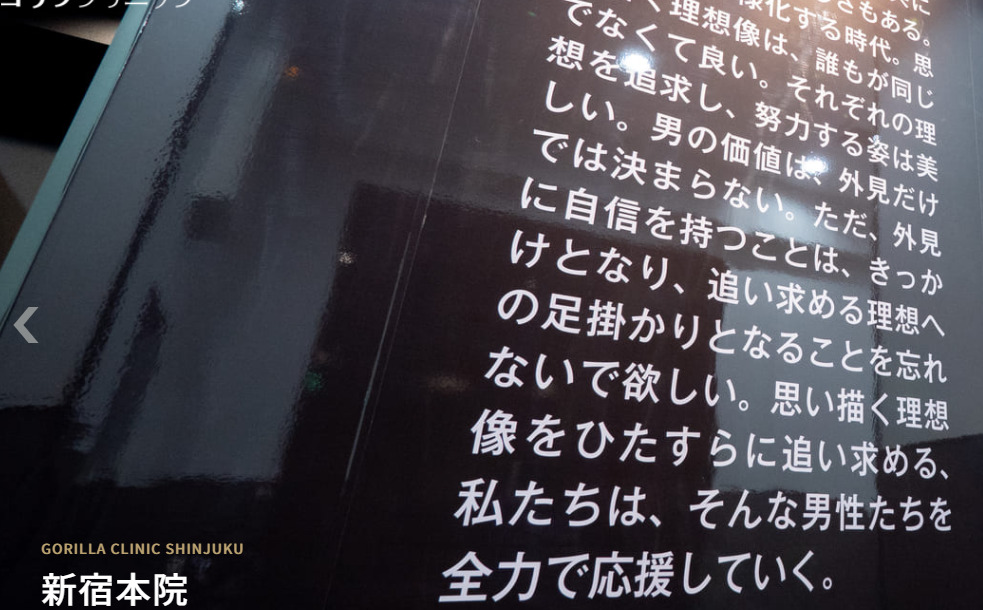 ゴリラクリニック
様化する時代。思
く理想像は、誰もが同じ
でなくて良い。それぞれの理
想を追求し、努力する姿は美
しい。男の価値は、外見だけ
では決まらない。ただ、外見
に自信を持つことは、きっか
けとなり、追い求める理想へ
の足掛かりとなることを忘れ
ないで欲しい。思い描く理想
像をひたすらに追い求める、
私たちは、そんな男性たちを
全力で応援していく。
GORILLA CLINIC SHINJUKU
新宿本院